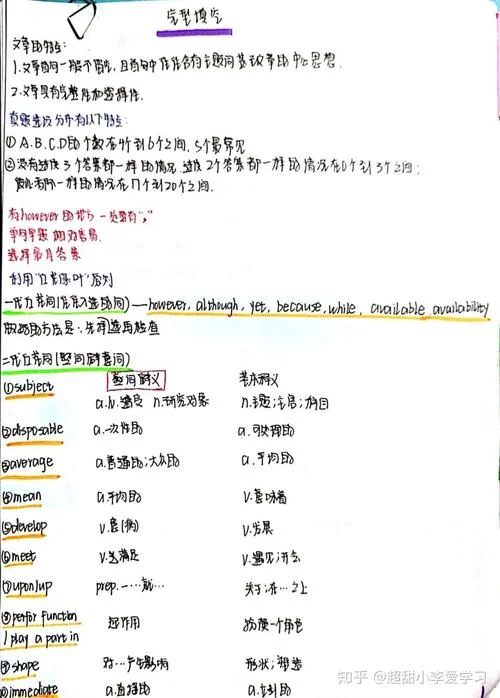 完型填空
文章的特点:
1.文章首句一般不留空,且首句中往往含有主题词 的中心思想.
2.文章具有完整性和选择性.
真题选项分布有以下特点:
① A.B.C.D的个数在4个到6个之间.5个最常见
②没有连续3个答案都一样的情况.连续2个答案都一样的情况在0个到3个之间;
一样的情况在17个到20个之间.
有however的地方.一定要有","
选择 答案
利用" "原则
一代力花词( 入选的词)——however, although, yet, because, while, available, availability
的方法是:先 选再检查
二代力花词(熟词僻意词)
熟词僻义 基本释义
①subject a./v.遭受 n.研究对象 n.主题;主语;科目
②disposable a.一次性的 a.可处理的
③average a.普通的;大众的 a.平均的
④mean a.平均的 v.意味着
⑤develop v.患(病) v.发展
⑥meet v.满足 v.遇见;开会
⑦upon/up prep.一…就… 关于;在…之上
⑧perfor function 起作用 扮演一个角色
/ play a part in
⑨shape 对…产生影响 形状;塑造
⑩immediate a.直接的 a.立刻的
知乎 @超甜小李爱学习